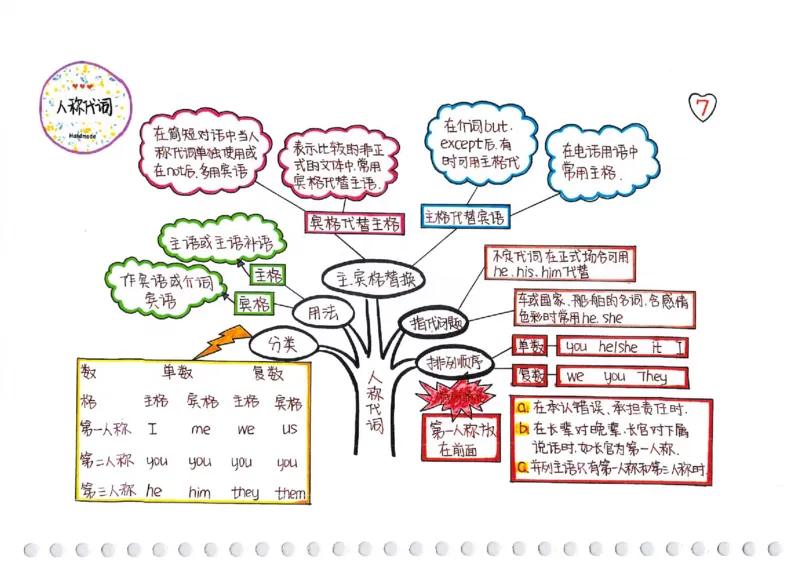 人称代词
Handmade
7
在简短对话中当人
称代词单独使用或
在not后,多用宾语
表示比较的非正
式的文体中,常用
宾格代替主语.
在介词but.
except后,有
时可用主格代
在电话用语中
常用主格.
宾格代替主格
主格代替宾语
主语或主语补语
主格
作宾语或介词
宾语
宾格
主.宾格替换
用法
分类
指代问题
排列顺序
人称代词
不定代词在正式场合可用
he.his.him代替
车或国家、船舶的名词,含感情
色彩时常用he.she
单数
you he/she it I
复数
we you They
第一人称放
在前面
a. 在承认错误、承担责任时.
b. 在长辈对晚辈、长官对下属
说话时.如长官为第一人称.
c. 并列主语只有第一人称和第三人称时.
数 单数 复数
格 主格 宾格 主格 宾格
第一人称 I me we us
第二人称 you you you you
第三人称 he him they them